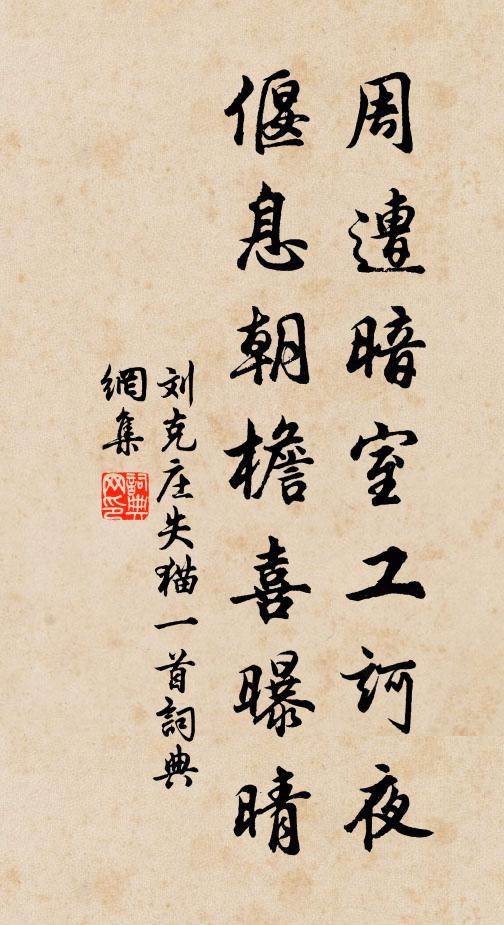 周遭暗室工訶夜
偃息朝檐喜曝晴
刘克庄失猫一首詞典
網集
詞典
网印